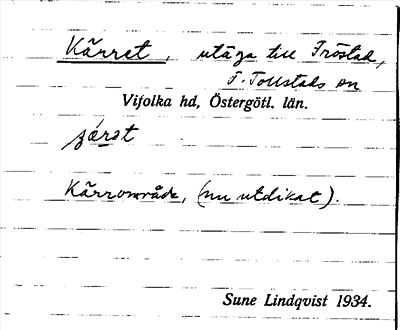 Kärret, utäga till Fröstad,
V. Tollstads sn
Vifolka hd, Östergötl. län.
Kärrområde, (nu utdikat).
Sune Lindqvist 1934.